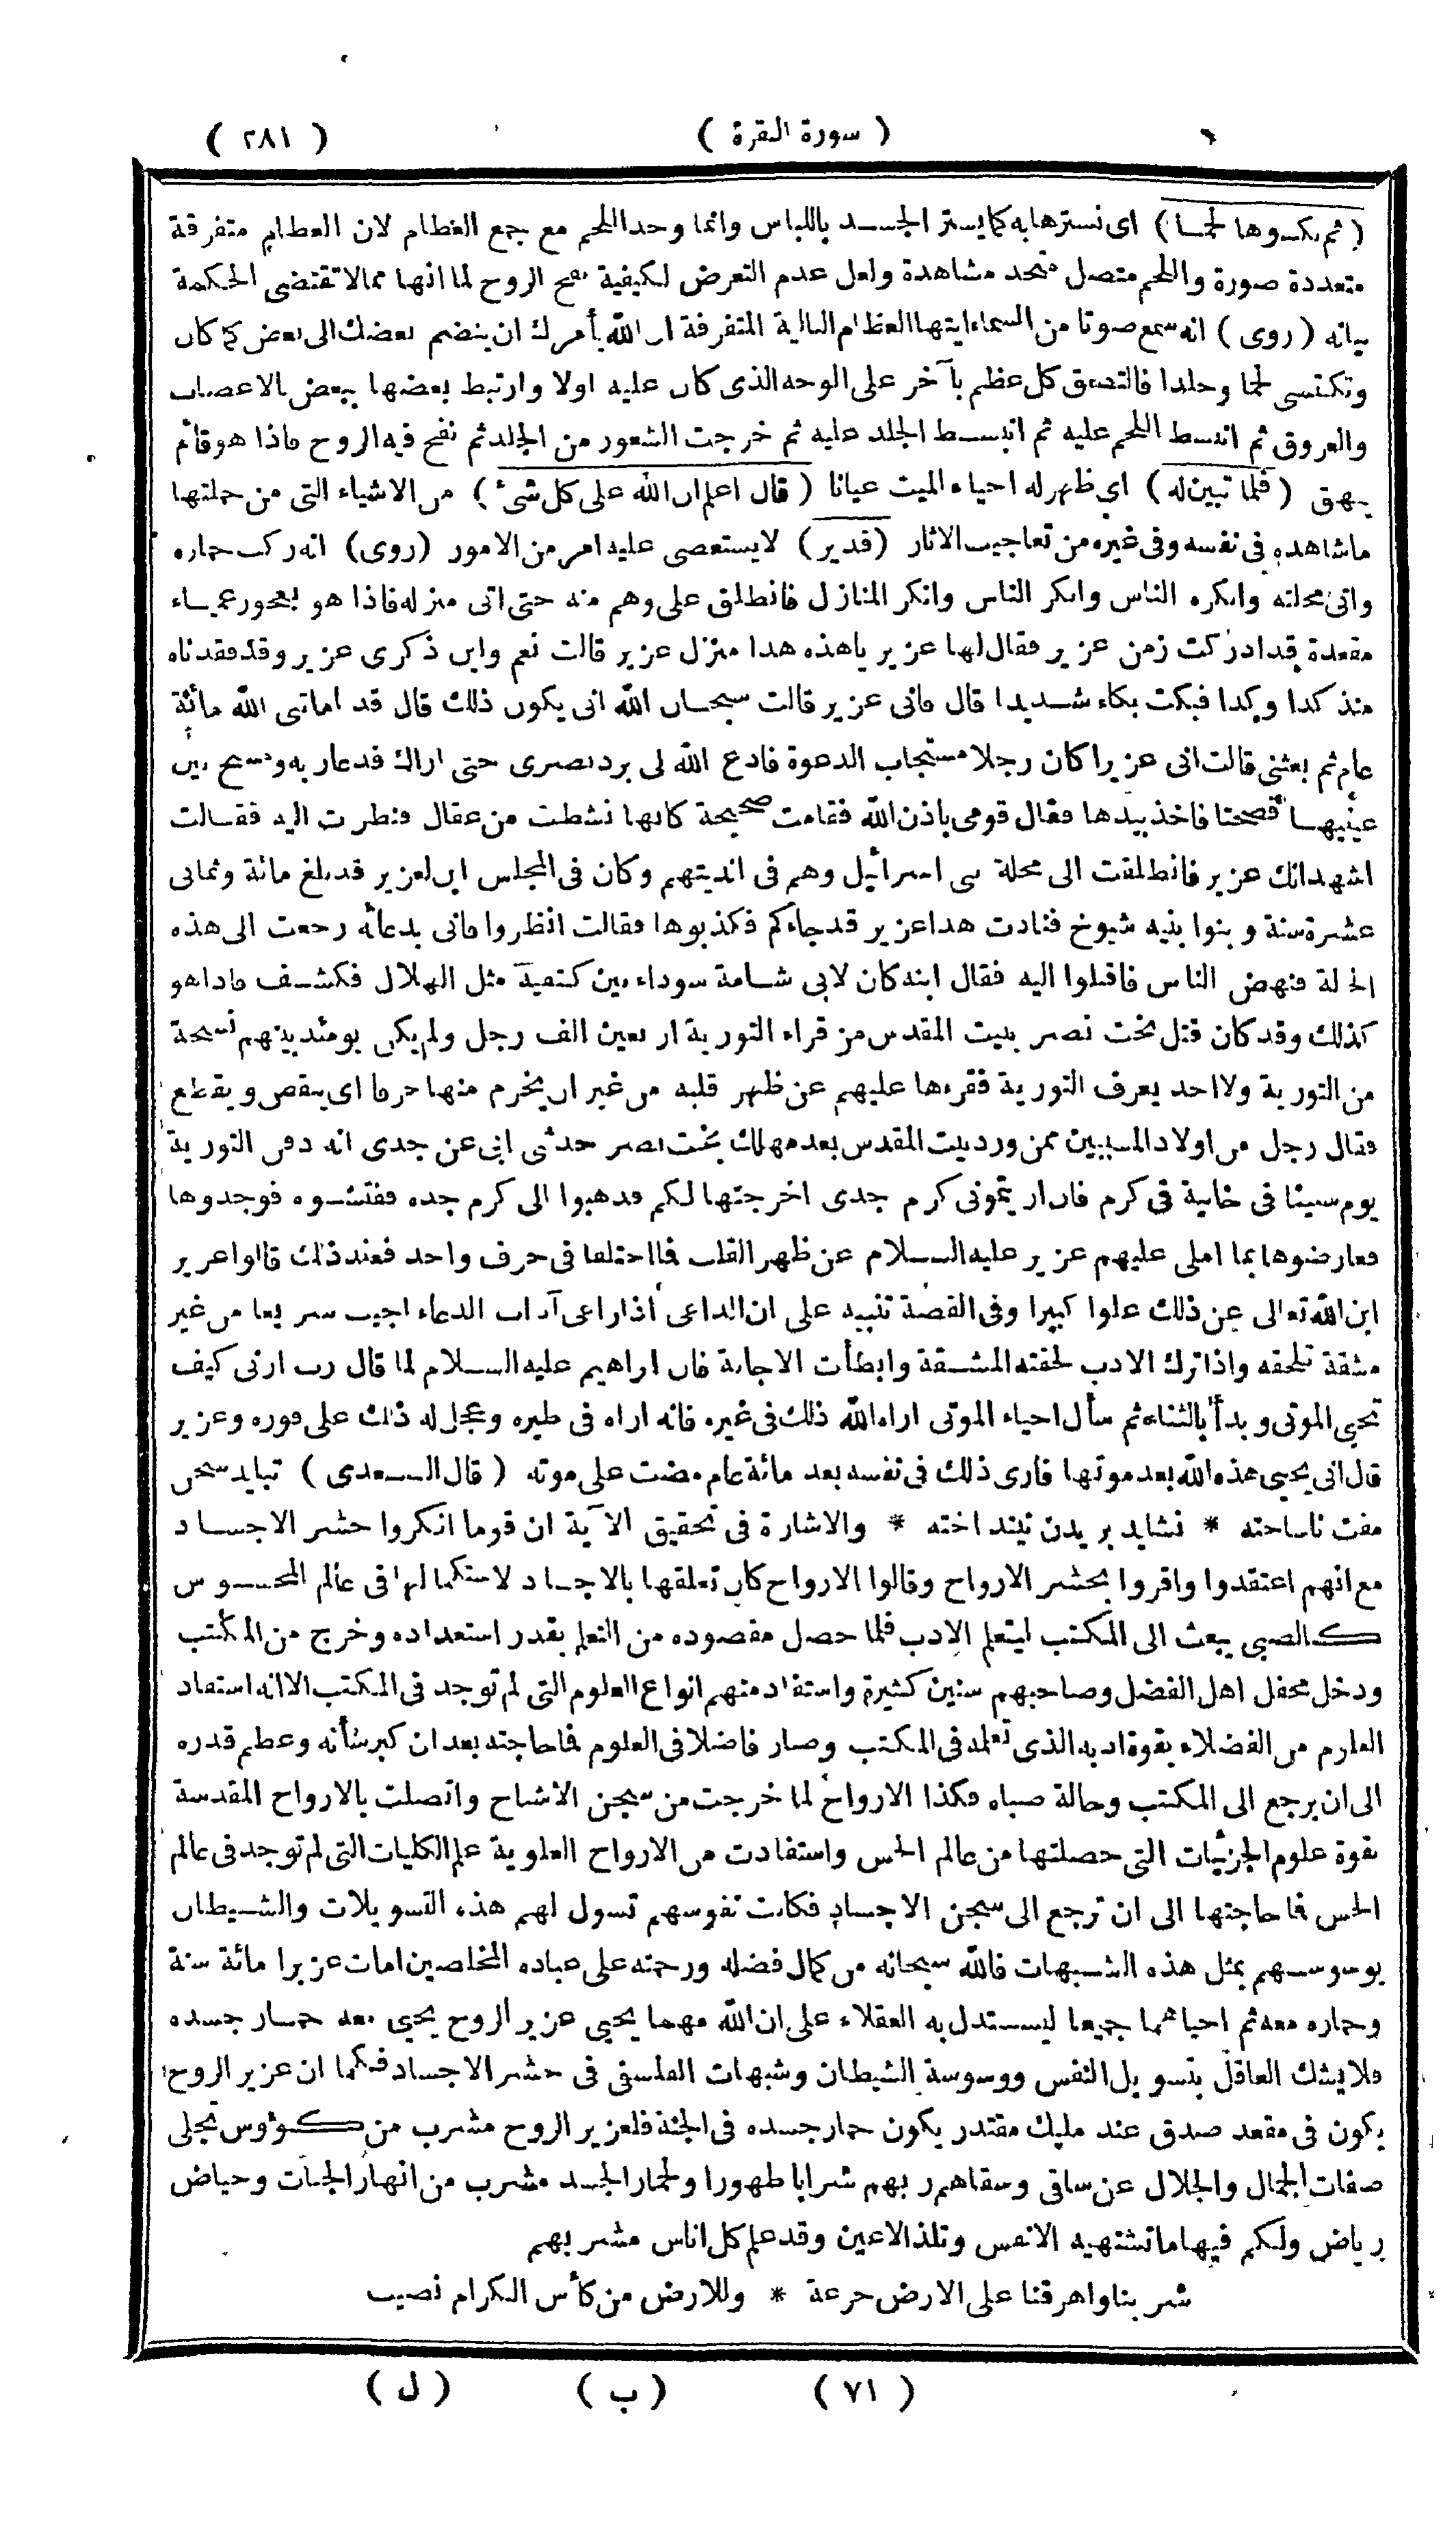 ( سورة البقرة ) ( ٢٨١ )
( ثم نكسوها لحما ) اى نسترها به كما يستر الجسد باللباس وانما وحد اللحم مع جمع العظام لان العظام متفرقة
متعددة صورة واللحم متصل متحد مشاهدة ولعل عدم التعرض لكيفية نفخ الروح لما انها مما لا تقتضى الحكمة
بيانه ( روى ) انه سمع صوتا من السماء ايتها العظام البالية المتفرقة ان الله يأمرك ان ينضم بعضك الى بعض كما كان
وتكتسى لحما وجلدا فالتصق كل عظم بآخر على الوجه الذى كان عليه اولا وارتبط بعضها ببعض بالاعصاب
والعروق ثم انبسط اللحم عليه ثم انبسط الجلد عليه ثم خرجت الشعور من الجلد ثم نفخ فيه الروح فاذا هو قائم
ينهق ( فلما تبين له ) اى ظهر له احياء الميت عيانا ( قال اعلم ان الله على كل شئ ) من الاشياء التى من جملتها
ما شاهده فى نفسه وفى غيره من تعاجيب الاثار ( قدير ) لا يستعصى عليه امر من الامور ( روى ) انه ركب حماره
واتى محلته وانكره الناس وانكر الناس وانكر المنازل فانطلق على وهم منه حتى اتى منزله فاذا هو بعجوز عمياء
مقعدة قد ادركت زمن عزير فقال لها عزير يا هذه هذا منزل عزير قالت نعم واين ذكرى عزير وقد فقدناه
منذ كذا وكذا فبكت بكاء شديدا قال فانى عزير قالت سبحان الله انى يكون ذلك قال قد اماتنى الله مائة
عام ثم بعثنى قالت ان عزيرا كان رجلا مستجاب الدعوة فادع الله لى يرد بصرى حتى اراك فدعا ربه ومسح بين
عينيها فصحتا فاخذ بيدها فقال قومى باذن الله فقامت صحيحة كانها نشطت من عقال فنظرت اليه فقالت
اشهد انك عزير فانطلقت الى محلة بنى اسرائيل وهم فى انديتهم وكان فى المجلس ابن لعزير قد بلغ مائة وثمانى
عشرة سنة وبنوا بنيه شيوخ فنادت هذا عزير قد جاءكم فكذبوها فقالت انظروا فانى بدعائه رجعت الى هذه
الحالة فنهض الناس فاقبلوا اليه فقال ابنه كان لابى شامة سوداء بين كتفيه مثل الهلال فكشف فاذا هو
كذلك وقد كان قتل بخت نصر ببيت المقدس من قراء التورية اربعين الف رجل ولم يكن يومئذ بينهم نسخة
من التورية ولا احد يعرف التورية فقرءها عليهم عن ظهر قلبه من غير ان يخرم منها حرفا اى ينقص ويقطع
فقال رجل من اولاد المسبيين ممن ورد بيت المقدس بعد مهلك بخت نصر حدثنى ابى عن جدى انه دفن التورية
يوم سبينا فى خابية فى كرم فان اريتمونى كرم جدى اخرجتها لكم فذهبوا الى كرم جده ففتشوه فوجدوها
فعارضوها بما املى عليهم عزير عليه السلام عن ظهر القلب فما اختلفا فى حرف واحد فعند ذلك قالوا عزير
ابن الله تعالى عن ذلك علوا كبيرا وفى القصة تنبيه على ان الداعى اذا راعى آداب الدعاء اجيب سريعا من غير
مشقة تلحقه واذا ترك الادب لحقته المشقة وابطأت الاجابة فان ابراهيم عليه السلام لما قال رب ارنى كيف
تحيى الموتى وبدأ بالثناء ثم سأل احياء الموتى اراه الله ذلك فى غيره فانه اراه فى طيره وعجل له ذلك على فوره وعزير
قال انى يحيى هذه الله بعد موتها فارى ذلك فى نفسه بعد مائة عام مضت على موته ( قال السعدى ) نبايد سخن
گفت ناساخته * نشايد بريدن نينداخته * والاشارة فى تحقيق الآية ان قوما انكروا حشر الاجساد
مع انهم اعتقدوا واقروا بحشر الارواح وقالوا الارواح كان تعلقها بالاجساد لاستكمالها فى عالم المحسوس
كالصبى يبعث الى المكتب ليتعلم الادب فلما حصل مقصوده من التعلم بقدر استعداده وخرج من المكتب
ودخل محفل اهل الفضل وصاحبهم سنين كثيرة واستفاد منهم انواع العلوم التى لم توجد فى المكتب الا انه استفاد
العلوم من الفضلاء بقوة ادبه الذى تعلمه فى المكتب وصار فاضلا فى العلوم فما حاجته بعد ان كبر شأنه وعظم قدره
الى ان يرجع الى المكتب وحالة صباه فكذا الارواح لما خرجت من سجن الاشباح واتصلت بالارواح المقدسة
بقوة علوم الجزئيات التى حصلتها من عالم الحس واستفادت من الارواح العلوية علم الكليات التى لم توجد فى عالم
الحس فما حاجتها الى ان ترجع الى سجن الاجساد فكانت نفوسهم تسول لهم هذه التسويلات والشيطان
يوسوسهم بمثل هذه الشبهات فالله سبحانه من كمال فضله ورحمته على عباده المخلصين امات عزيرا مائة سنة
وحماره معه ثم احياهما جميعا ليستدل به العقلاء على ان الله مهما يحيى عزير الروح يحيى معه حمار جسده
فلا يشك العاقل بتسويل النفس ووسوسة الشيطان وشبهات الفلسفى فى حشر الاجساد فكما ان عزير الروح
يكون فى مقعد صدق عند مليك مقتدر يكون حمار جسده فى الجنة فلعزير الروح مشرب من كؤوس تجلى
صفات الجمال والجلال عن ساقى وسقاهم ربهم شرابا طهورا ولحمار الجسد مشرب من انهار الجنات وحياض
رياض ولكم فيها ما تشتهيه الانفس وتلذ الاعين وقد علم كل اناس مشربهم
شربنا واهرقنا على الارض جرعة * وللارض من كأس الكرام نصيب
( ٧١ ) ( ب ) ( ل )